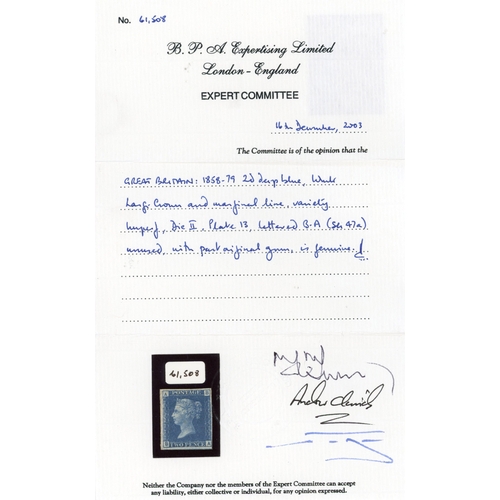 No. 61,508
B. P. A. Expertising Limited
London - England
EXPERT COMMITTEE
16th December, 2003
The Committee is of the opinion that the
GREAT BRITAIN: 1858-79 2d deep blue, Wmk
Large Crown and marginal line, variety
Imperf, Die II, Plate 13, lettered B-A (SG 47a)
unused, with part original gum, is genuine.
61,508
POSTAGE
TWO PENCE
B A
Neither the Company nor the members of the Expert Committee can accept
any liability, either collective or individual, for any opinion expressed.